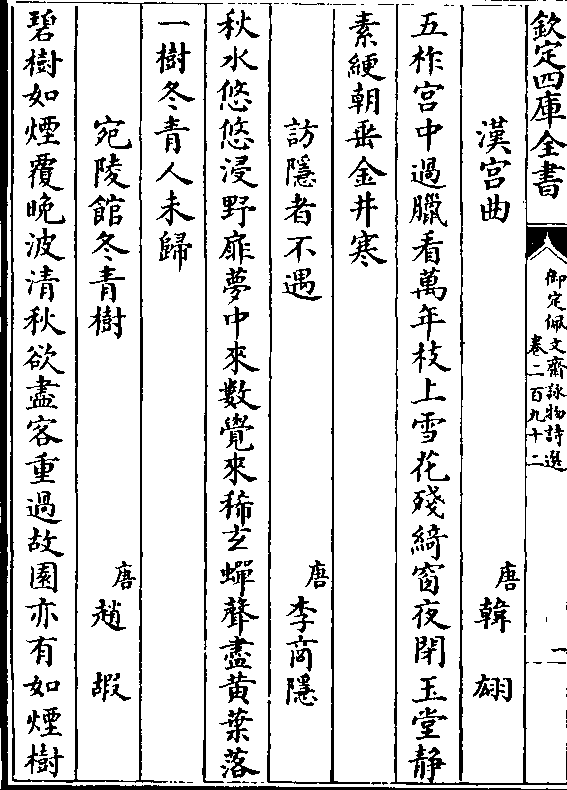 欽定四庫全書
御定佩文齋詠物詩選
卷二百九十二
一
漢宮曲
唐韓翃
五柞宮中過臘看萬年枝上雪花殘綺窗夜閉玉堂靜
素綆朝垂金井寒
訪隱者不遇
唐李商隱
秋水悠悠浸野扉夢中來數覺來稀玄蟬聲盡黃葉落
一樹冬青人未歸
宛陵館冬青樹
唐趙嘏
碧樹如煙覆晚波清秋欲盡客重過故園亦有如煙樹